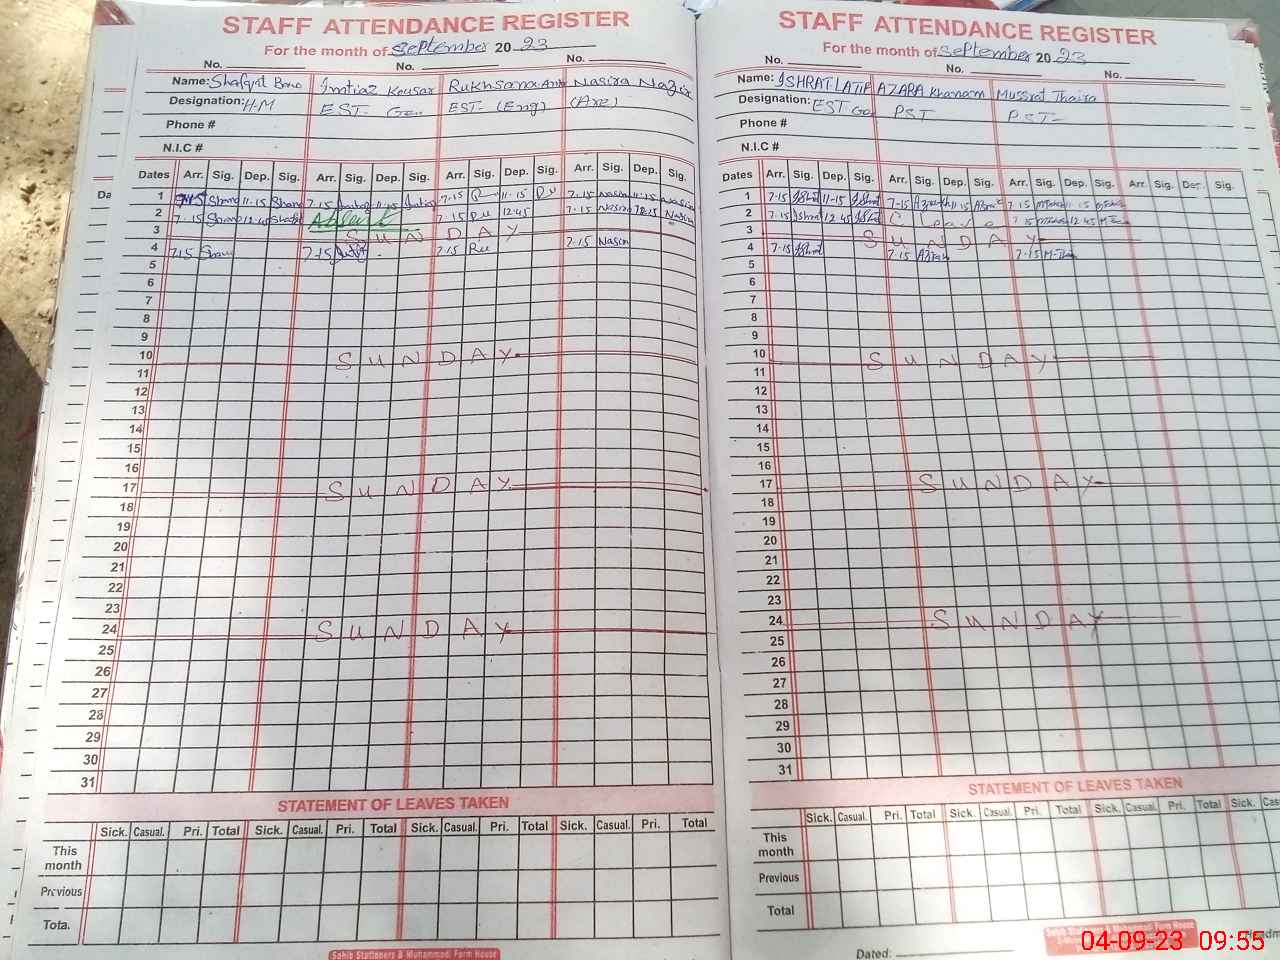 STAFF ATTENDANCE REGISTER
For the month of September 20 23
No. No. No.
Name: Shafqat Bano Imtiaz Kousar Rukhsana Nasira Nazir
Designation: H-M EST- Gen EST- (Eng)
Phone #
N.I.C #
Dates Arr. Sig. Dep. Sig. Arr. Sig. Dep. Sig. Arr. Sig. Dep. Sig. Arr. Sig. Dep. Sig.
1 11-15 7-15 11-15 7-15 11-15 7-15 Nasira 11-15 Nasira
2 7-15 12-45 Absent 7-15 Ru 12-45 7-15 Nasira 12-45 Nasira
3 SUNDAY
4 7-15 7-15 7-15 Ru 7-15 Nasira
5
6
7
8
9
10 SUNDAY
11
12
13
14
15
16
17 SUNDAY
18
19
20
21
22
23
24 SUNDAY
25
26
27
28
29
30
31
STATEMENT OF LEAVES TAKEN
Sick. Casual. Pri. Total Sick. Casual. Pri. Total Sick. Casual. Pri. Total Sick. Casual. Pri. Total
This month
Previous
Total
Sahib Stationers & Muhammadi Form House
STAFF ATTENDANCE REGISTER
For the month of September 20 23
No. No. No.
Name: ISHRAT LATIF AZARA Khanam Mussrat Thaira
Designation: EST PST PST
Phone #
N.I.C #
Dates Arr. Sig. Dep. Sig. Arr. Sig. Dep. Sig. Arr. Sig. Dep. Sig. Arr. Sig. Der. Sig.
1 7-15 Ishrat 11-15 Ishrat 7-15 11-15 7-15 11-15
2 7-15 Ishrat 12-45 Ishrat C Leave 7-15 12-45
3 SUNDAY
4 7-15 Ishrat 7-15 7-15
5
6
7
8
9
10 SUNDAY
11
12
13
14
15
16
17 SUNDAY
18
19
20
21
22
23
24 SUNDAY
25
26
27
28
29
30
31
STATEMENT OF LEAVES TAKEN
Sick. Casual. Pri. Total Sick. Casual. Pri. Total Sick. Casual. Pri. Total Sick.
This month
Previous
Total
Dated:
04-09-23 09:55